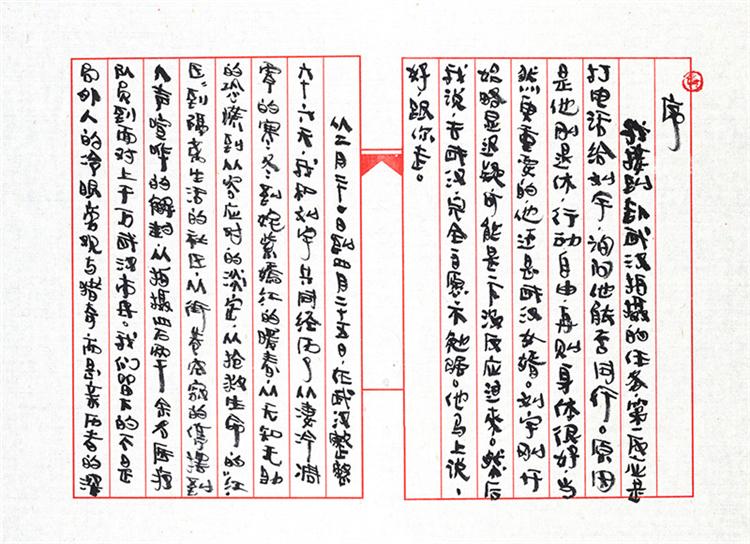 序
我接到赴武汉拍摄的任务，第一反应是
打电话给刘宇，询问他能否同行。原因
是他刚退休，行动自由，再则身体很好，当
然更重要的，他还是武汉女婿。刘宇刚开
始略显迟疑，可能是一下没反应过来。然后
我说，去武汉，完全自愿，不勉强。他马上说，
好，跟你走。
从二月二十日到四月二十五日，在武汉整整
六十六天，我和刘宇共同经历了从凄冷凋
零的寒冬到姹紫嫣红的暖春，从无知无助
的恐慌到从容应对的淡定，从抢救生命的“红
区”到隔离生活的社区，从街巷空寂的停摆到
人声喧哗的解封，从拍摄四万两千余名医疗
队员到面对上千万武汉市民。我们留下的不是
局外人的冷眼旁观与猎奇，而是亲历者的深